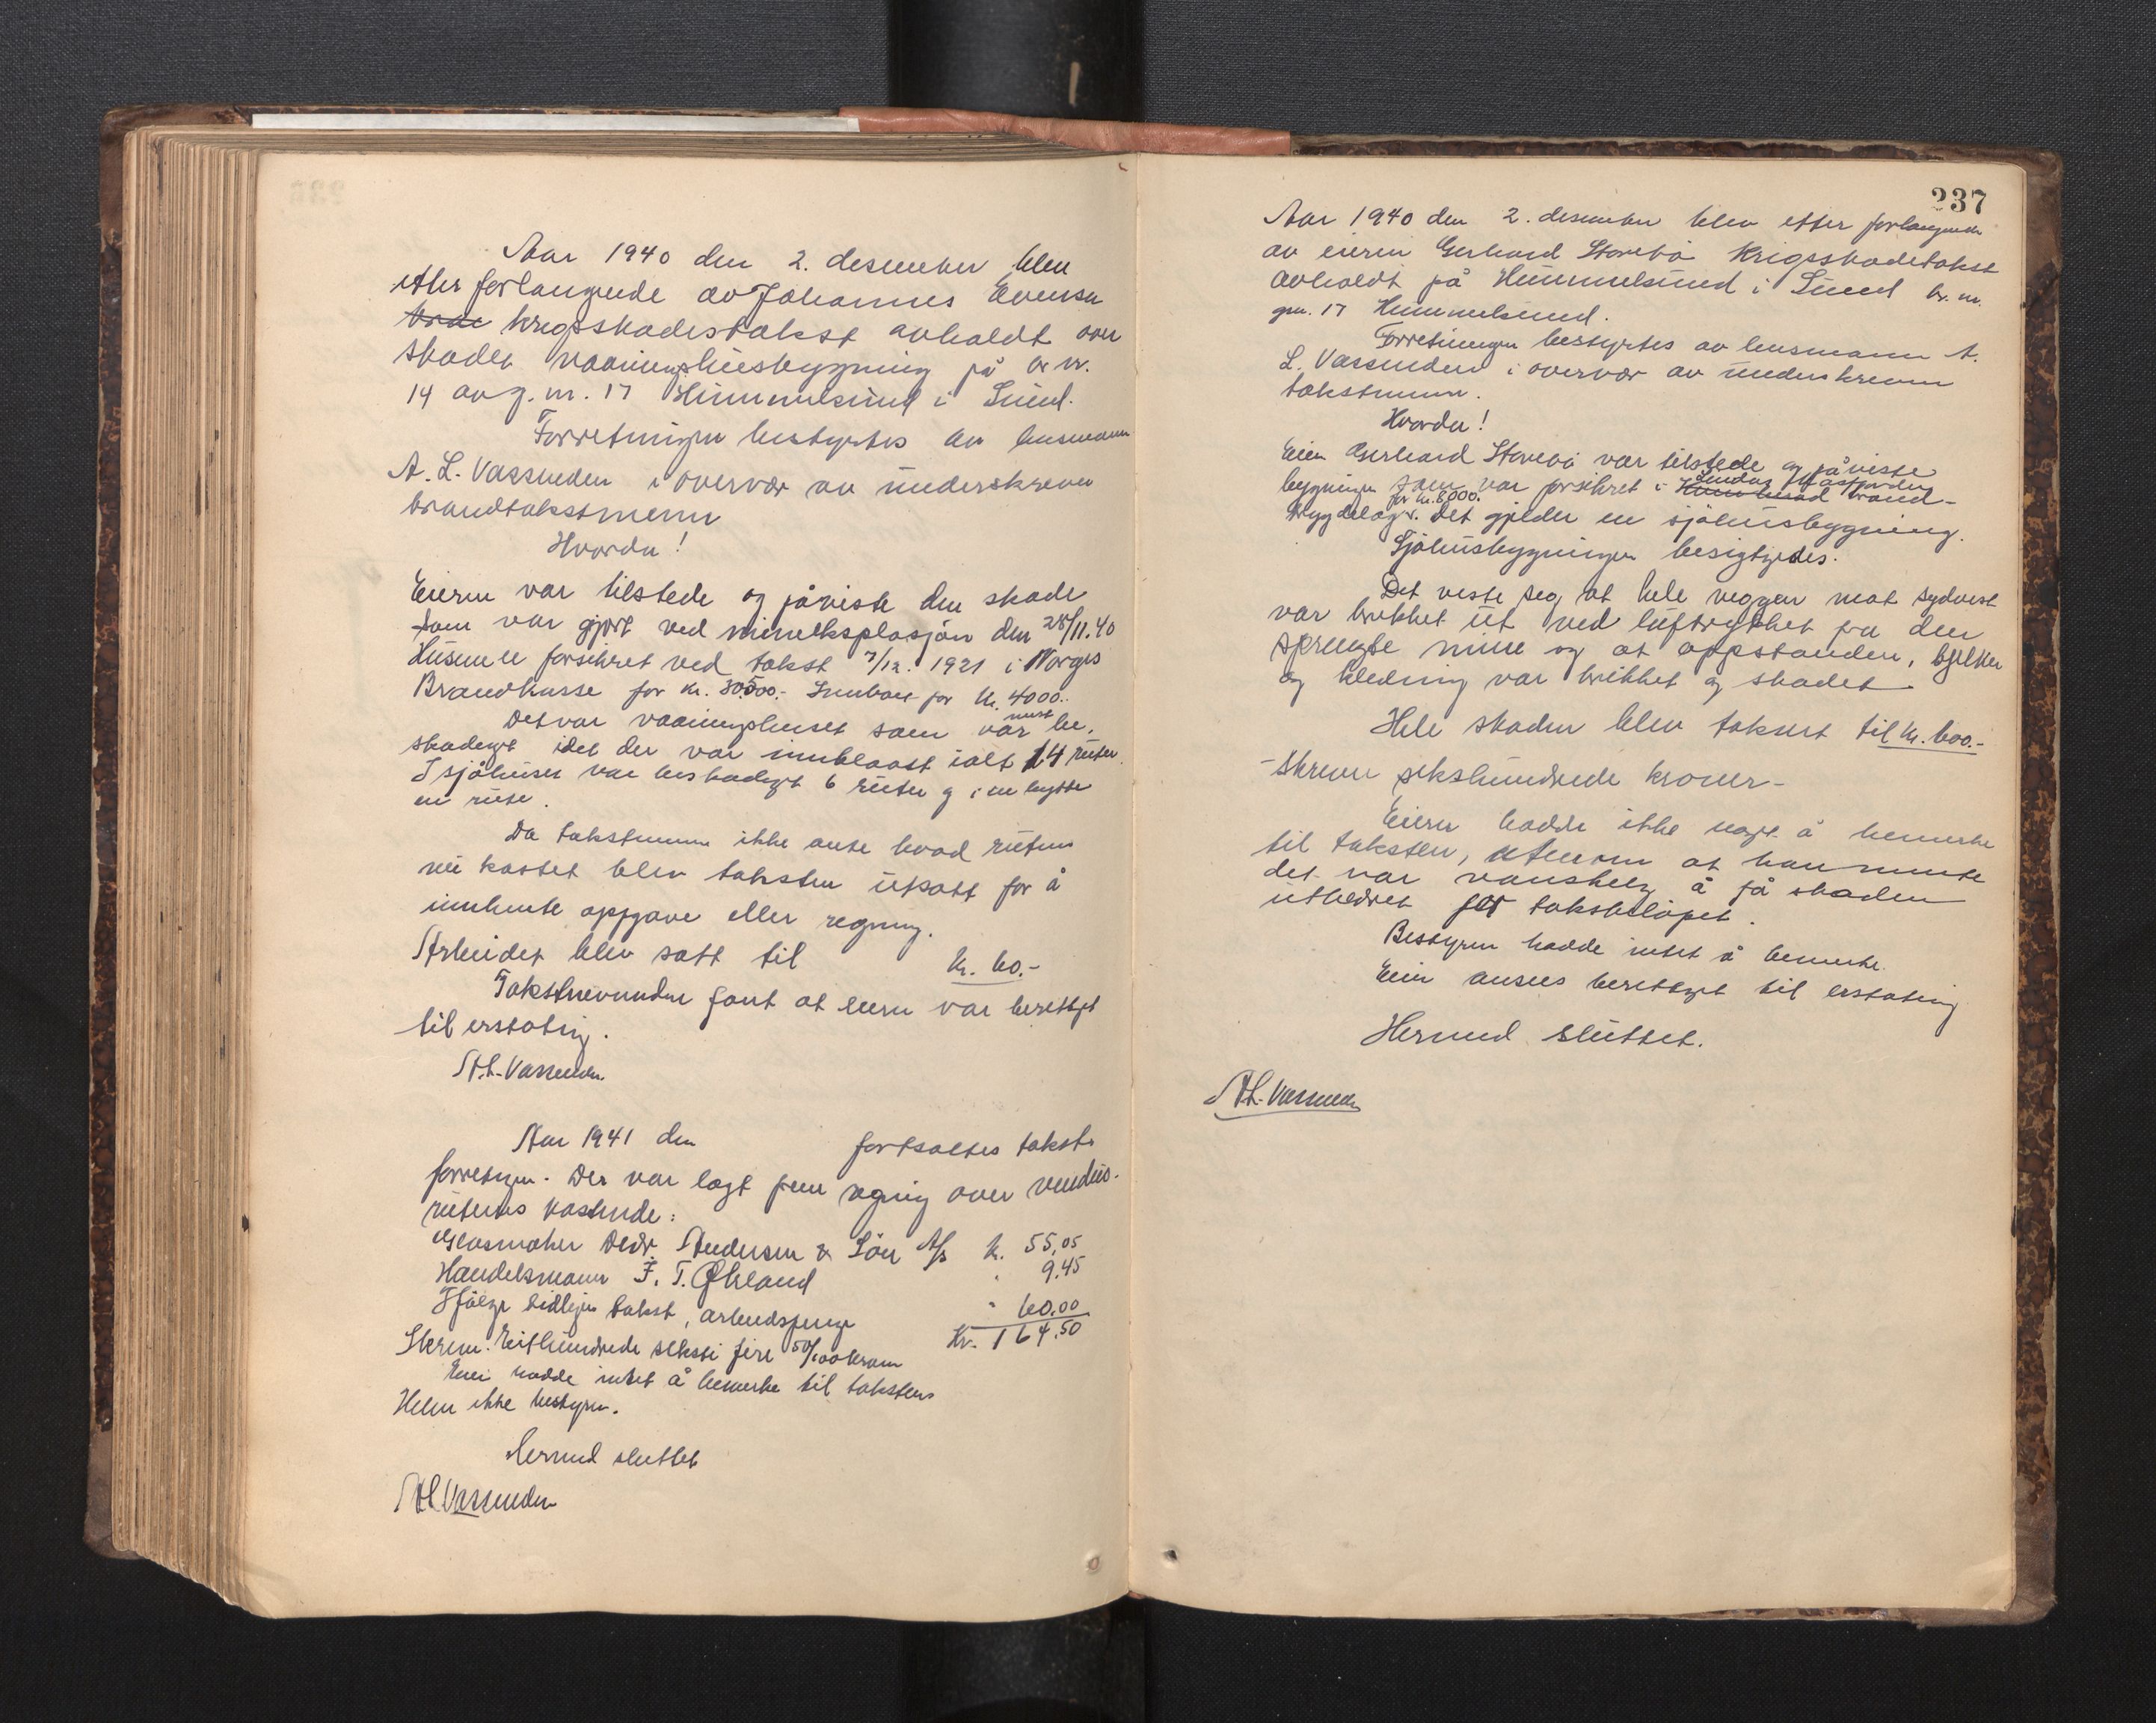 Aar 1940 den 2. desember blev
etter forlangende av Johannes Evensen
krigsskadestakst avholdt over
skadet vaaningshusbygning på br. nr.
14 av g. nr. 17 Hummelsund i Sund.
Forretningen bestyrtes av lensmann
A. L. Vassenden i overvær av underskrevne
brandtakstmenn
Hvorda!
Eieren var tilstede og påviste den skade
som var gjort ved mineeksplosjon den 28/11.40
Husene er forsikret ved takst 7/12. 1921 i Norges
Brandkasse for kr. 30500.- Innbo for kr. 4000.-
Det var vaaningshuset som var mest be-
skadiget idet der var innblaast ialt 14 ruter.
I sjøhuset var beskadiget 6 ruter og i en hytte
en rute.
Da takstmenn ikke anse hvad rutene
nu kostet blev taksten utsatt for å
innhente oppgave eller regning.
Arbeidet blev satt til kr. 60.-
Takstnevnden fant at eieren var berettiget
til erstatning.
A.L. Vassenden
Aar 1941 den fortsattes takst-
forretngen. Der var lagt frem regning over vindus-
rutenes kostende:
Glasmaker Dedr. Andersen & Søn A/s kr. 55,05
Handelsmann F. T. Økland " 9.45
Ifølge tidligere takst, arbeidspenge " 60.00
Kr. 164.50
Skriver: Eithundrede seksti fire 50/100 kroner
Eier hadde intet å bemerke til taksten
Heller ikke bestyrer.
Hermed sluttet
A L Vassenden
237
Aar 1940 den 2. desember blev etter forlangende
av eieren Gerhard Storebø Krigsskadetakst
avholdt på Hummelsund i Sund br. nr.
gnr. 17 Hummelsund.
Forretningen bestyrtes av lensmann A.
L. Vassenden i overvær av underskrevne
takstmenn.
Hvorda!
Eier Gerhard Storebø var tilstede og påviste
bygningen som var forsikret i brand-
bygdelag for kr. 8000. Det gjelder en sjøhusbygning.
Sjøhusbygningen besigtigedes.
Det viste seg at hele veggen mot sydvest
var brukket ut ved lufttrykket fra den
sprengte mine og at oppstanden, bjelker
og kledning var brukket og skadet.
Hele skaden blev taksert til kr. 600.-
-Skriver sekshundrede kroner-
Eieren hadde ikke noget å bemerke
til taksten, utenom at han mente
det var vanskelig å få skaden
utbedret for takstbeløpet.
Bestyrer hadde intet å bemerke.
Eier ansees berettiget til erstatning
Hermed sluttet.
A L. Vassenden